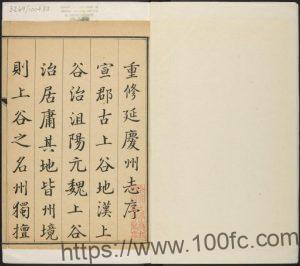 重修延慶州志序
宣郡古上谷地漢上
谷治沮陽元魏上谷
治居庸其地皆州境
則上谷之名州獨擅
https://www.100fc.com